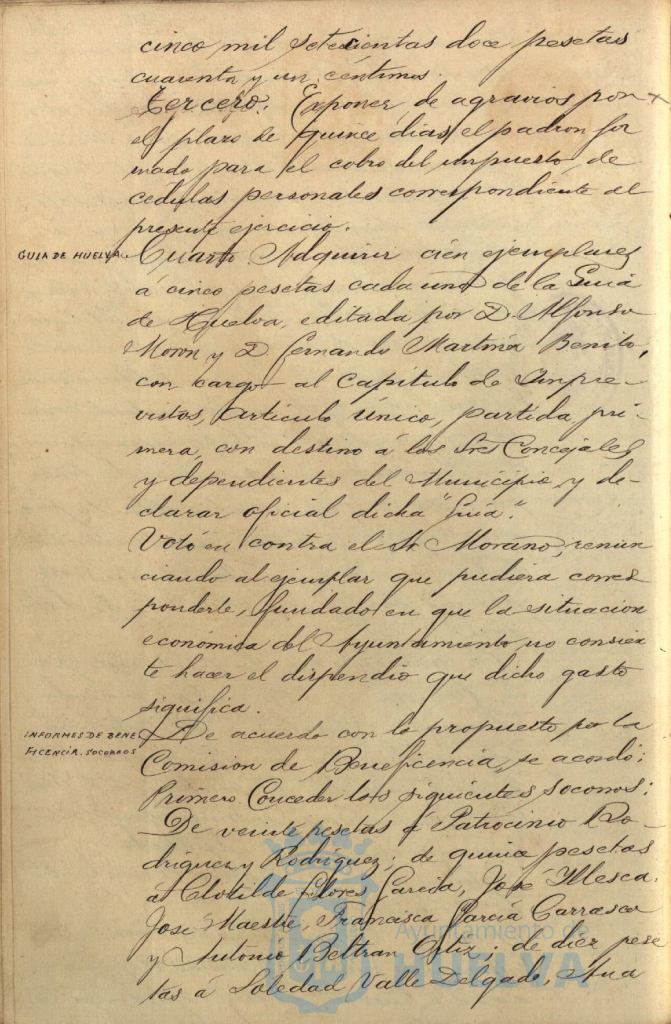 cinco mil setecientas doce pesetas
cuarenta y un céntimos.
Tercero. Exponer de agravios por
el plazo de quince días, el padron for
mado para el cobro del impuesto de
cédulas personales correspondiente al
presente ejercicio.
GUIA DE HUELVA.
Cuarto. Adquirir cien ejemplares
á cinco pesetas cada uno de la Guia
de Huelva, editada por D. Alfonso
Moron y D. Fernando Martina Benito,
con cargo al Capitulo de Impre-
vistos, Articulo único, partida pri-
mera, con destino á los Sres Concejales
y dependientes del Municipio y de-
clarar oficial dicha "Guia".
Votó en contra el Sr Morano, renun
ciando al ejemplar que pudiera corres
ponderle, fundado en que la situacion
económica del Ayuntamiento no consien
te hacer el dispendio que dicho gasto
significa.
INFORMES DE BENE
FICENCIA. SOCORROS
De acuerdo con lo propuesto por la
Comision de Beneficencia, se acordó:
Primero. Conceder los siguientes socorros:
De veinte pesetas á Patrocinio Ro-
driguez y Rodriguez; de quince pesetas
á Clotilde Flores Garcia, José Illesca,
José Maestre, Francisca Garcia Carrasco
y Antonio Beltran Ortiz; de diez pese
tas á Soledad Valle Delgado, Ana
Ayuntamiento de
HUELVA